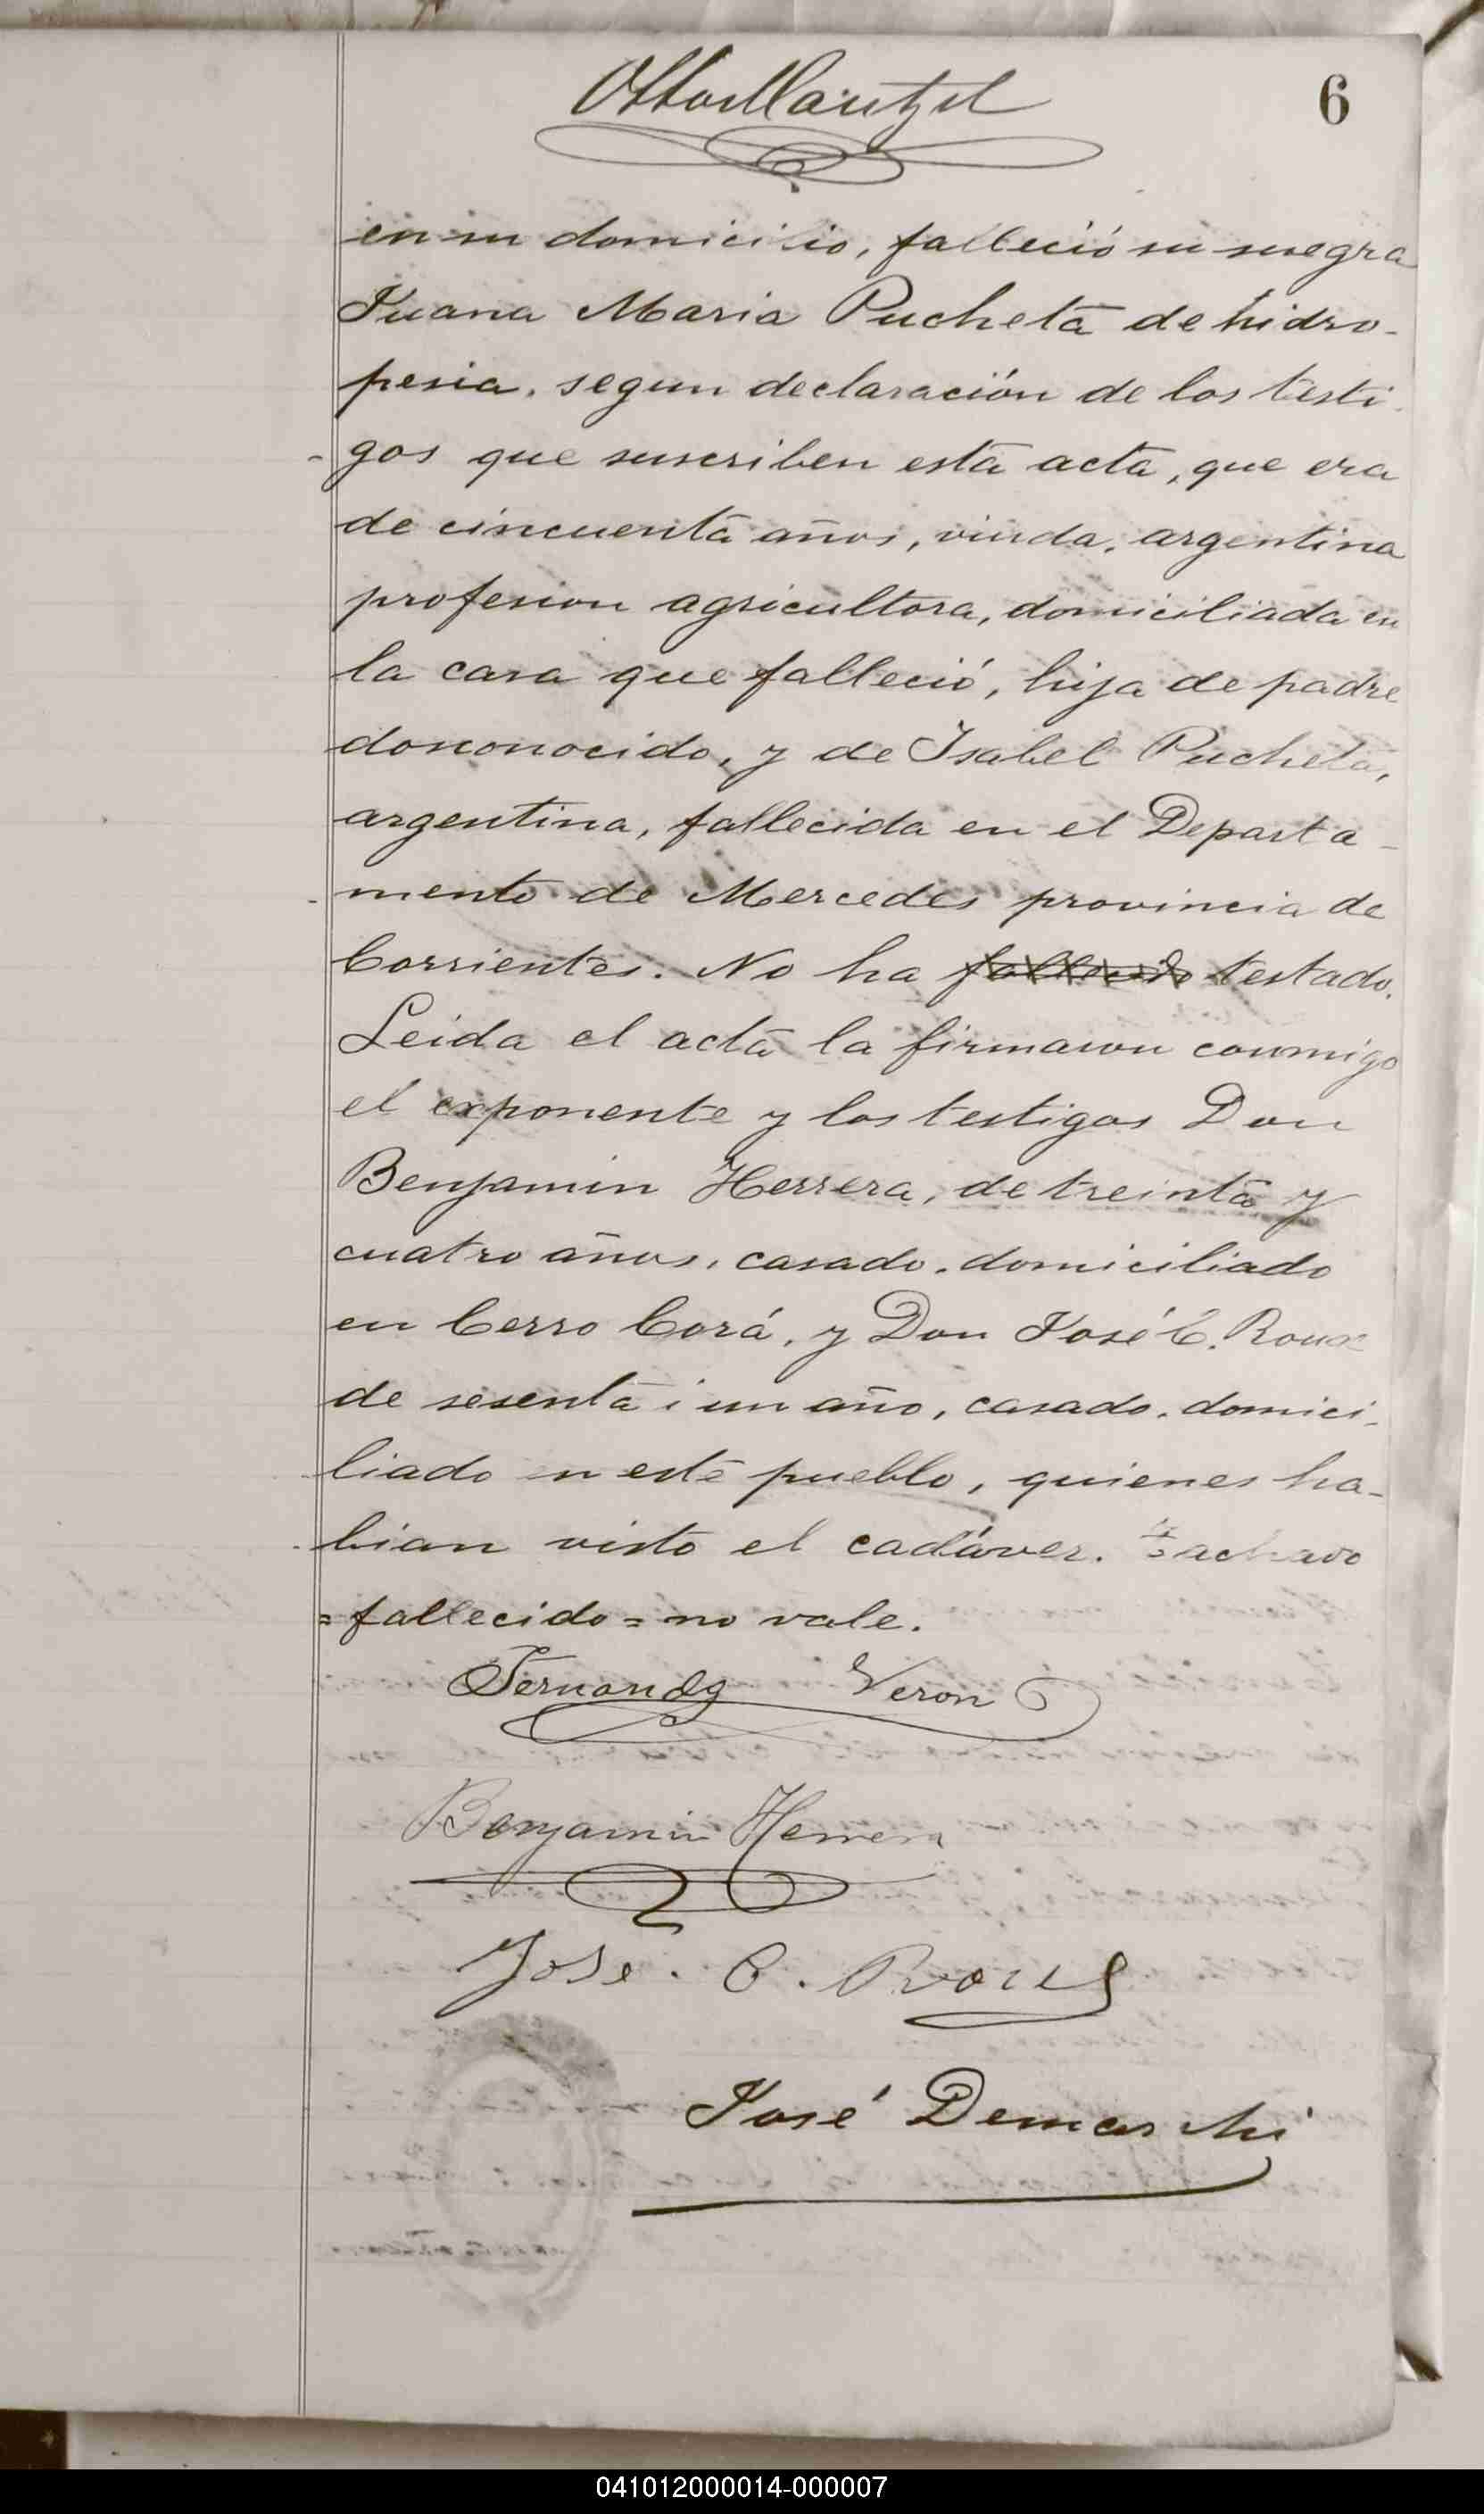 6
en su domicilio, falleció su suegra
Juana Maria Pucheta de hidro-
pesia, segun declaración de los testi-
gos que suscriben esta acta, que era
de cincuenta años, viuda, argentina
profesion agricultora, domiciliada en
la casa que falleció, hija de padre
desconocido, y de Isabel Pucheta,
argentina, fallecida en el Departa-
mento de Mercedes provincia de
Corrientes. No ha fallecido testado.
Leida el acta la firmaron conmigo
el exponente y los testigos Don
Benjamin Herrera, de treinta y
cuatro años, casado, domiciliado
en Cerro Corá, y Don José C. Roux
de sesenta i un año, casado, domici-
liado en este pueblo, quienes ha-
bian visto el cadáver. Tachado
=fallecido= no vale.
Fernandez Veron
Benjamin Herrera
Jose. C. Roux
José Demarchi
041012000014-000007